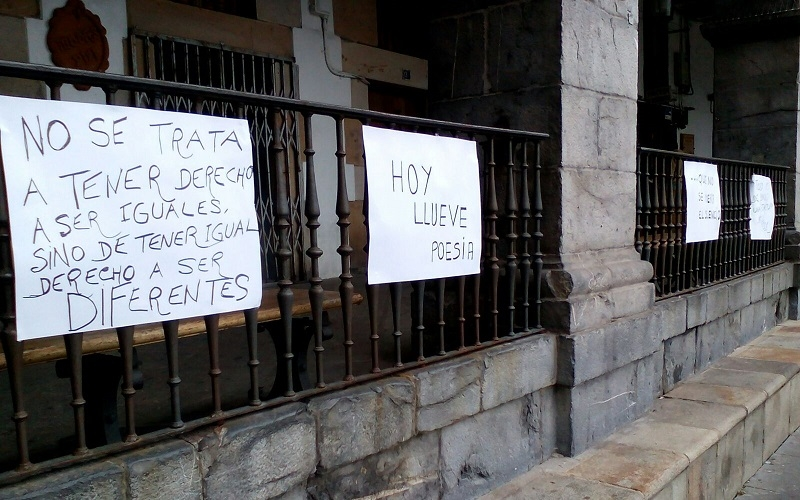 NO SE TRATA
A TENER DERECHO
A SER IGUALES,
SINO DE TENER IGUAL
DERECHO A SER
DIFERENTES
HOY
LLUEVE
POESÍA
QUE NO
SE
EL SILENCIO